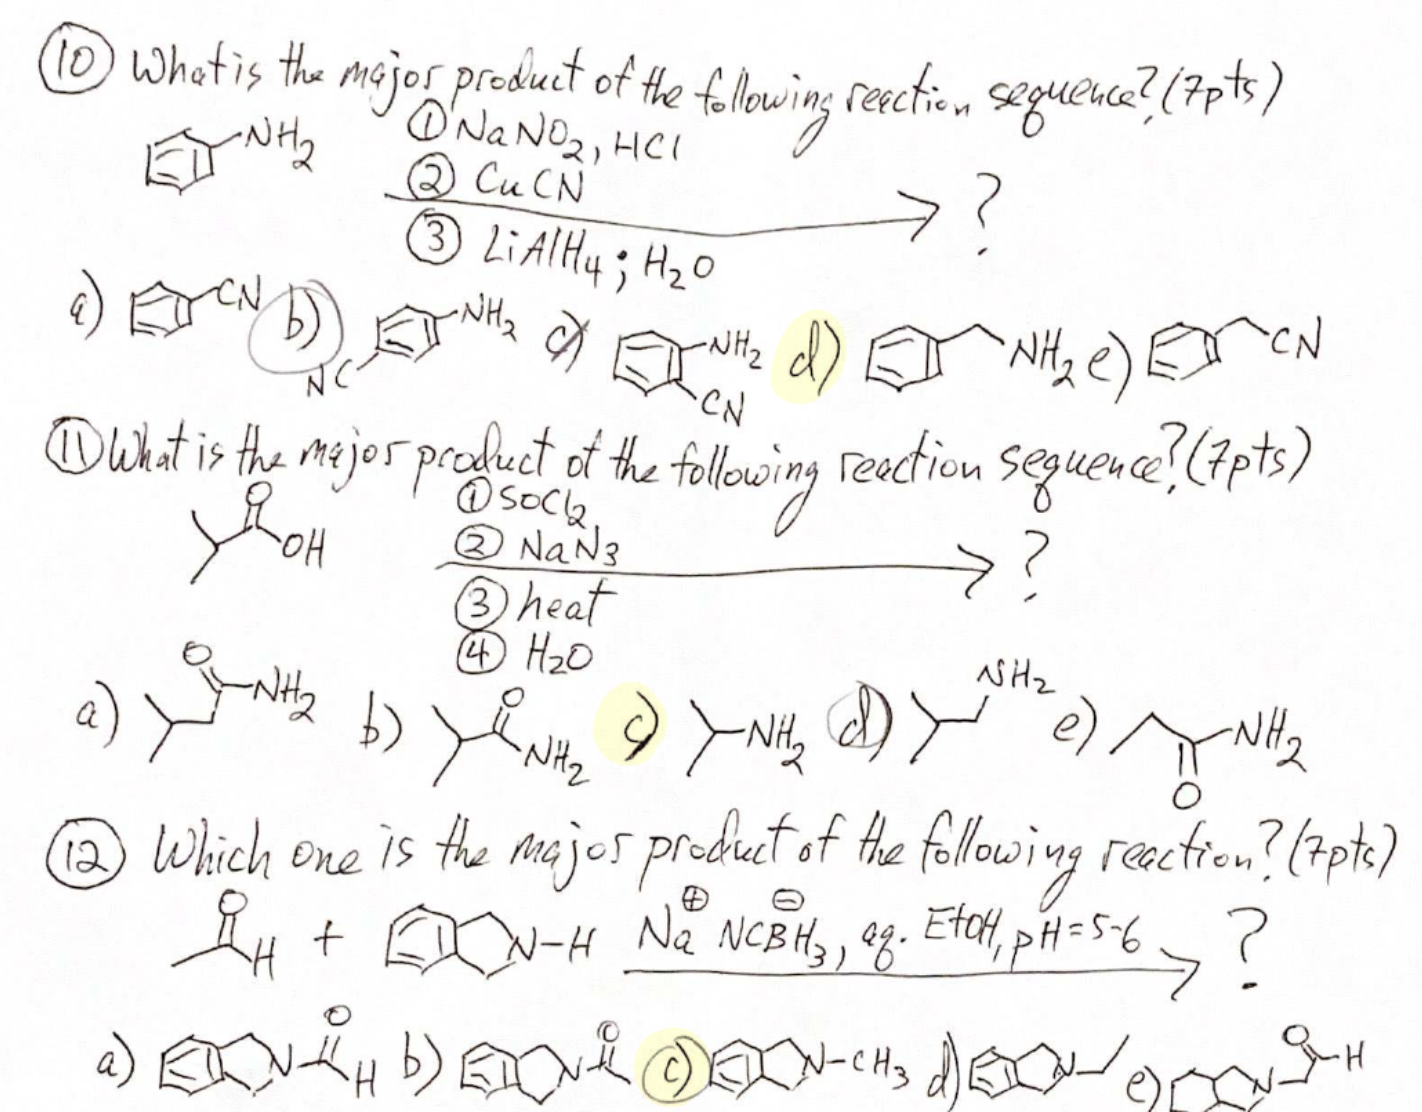 ⑩ What is the major product of the following reaction sequence? (7pts)
NH₂ ① NaNO₂, HCl
② CuCN
③ LiAlH₄; H₂O ?
a) CN b) NC NH₂ c) NH₂ CN d) NH₂ e) CN
⑪ What is the major product of the following reaction sequence? (7pts)
O OH ① SOCl₂
② NaN₃
③ heat ?
④ H₂O
a) O NH₂ b) O NH₂ c) NH₂ d) NH₂ e) NH₂ O
⑫ Which one is the major product of the following reaction? (7pts)
O H + N-H Na⊕ NCBH₃⊖, aq. EtOH, pH=5-6 ?
a) N O H b) N O c) N-CH₃ d) N e) N O H